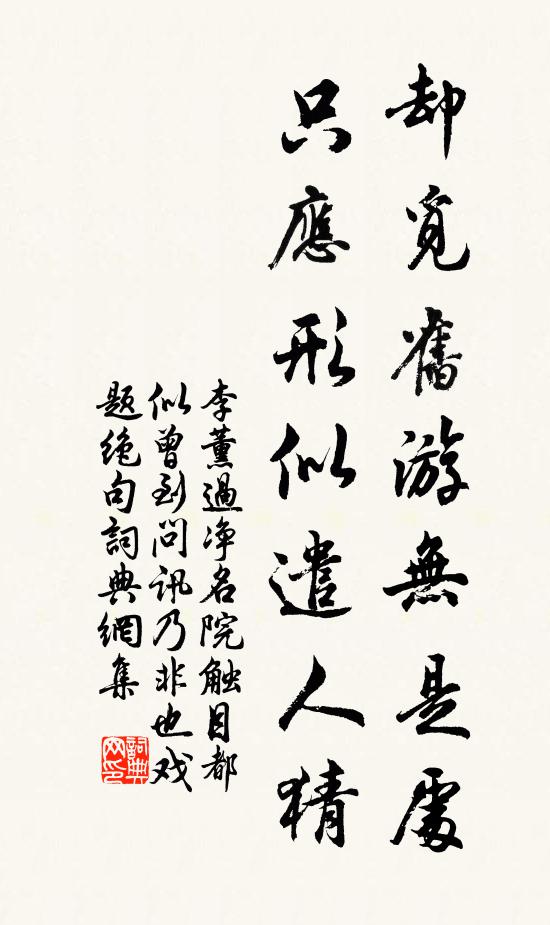 却覓舊游無是處
只應形似遣人猜
李薰過净名院触目都
似曾到問訊乃非也戏
题绝句詞典網集
詞典網印